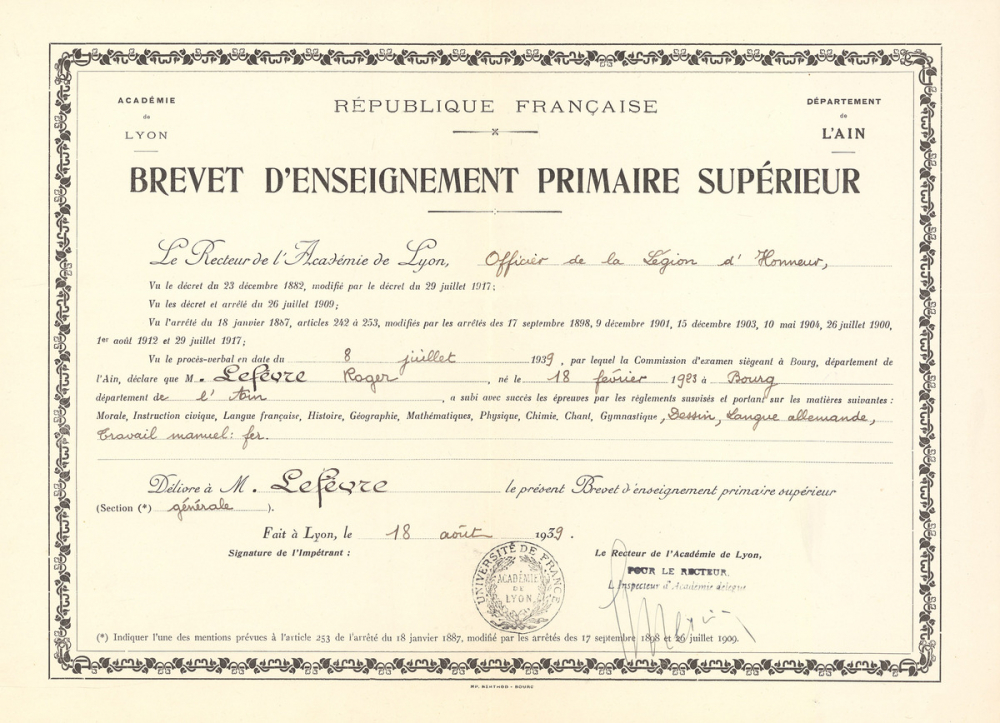 ACADÉMIE
de
LYON
RÉPUBLIQUE FRANÇAISE
DÉPARTEMENT
de
L'AIN
BREVET D'ENSEIGNEMENT PRIMAIRE SUPÉRIEUR
Le Recteur de l'Académie de Lyon, Officier de la Légion d'Honneur,
Vu le décret du 23 décembre 1882, modifié par le décret du 29 juillet 1917;
Vu les décret et arrêté du 26 juillet 1909;
Vu l'arrêté du 18 janvier 1887, articles 242 à 253, modifiés par les arrêtés des 17 septembre 1898, 9 décembre 1901, 15 décembre 1903, 10 mai 1904, 26 juillet 1900,
1er août 1912 et 29 juillet 1917;
Vu le procès-verbal en date du 8 juillet 1939, par lequel la Commission d'examen siégeant à Bourg, département de
l'Ain, déclare que M. Lefèvre Roger, né le 18 février 1923 à Bourg
département de l'Ain, a subi avec succès les épreuves par les règlements susvisés et portant sur les matières suivantes :
Morale, Instruction civique, Langue française, Histoire, Géographie, Mathématiques, Physique, Chimie, Chant, Gymnastique, Dessin, Langue allemande,
Travail manuel: fer.
Délivré à M. Lefèvre le présent Brevet d'enseignement primaire supérieur
(Section (*) générale ).
Fait à Lyon, le 18 août 1939.
Signature de l'Impétrant :
Le Recteur de l'Académie de Lyon,
POUR LE RECTEUR.
L'Inspecteur d'Académie délégué
UNIVERSITÉ DE FRANCE
ACADÉMIE
DE
LYON
(*) Indiquer l'une des mentions prévues à l'article 253 de l'arrêté du 18 janvier 1887, modifié par les arrêtés des 17 septembre 1898 et 26 juillet 1909.